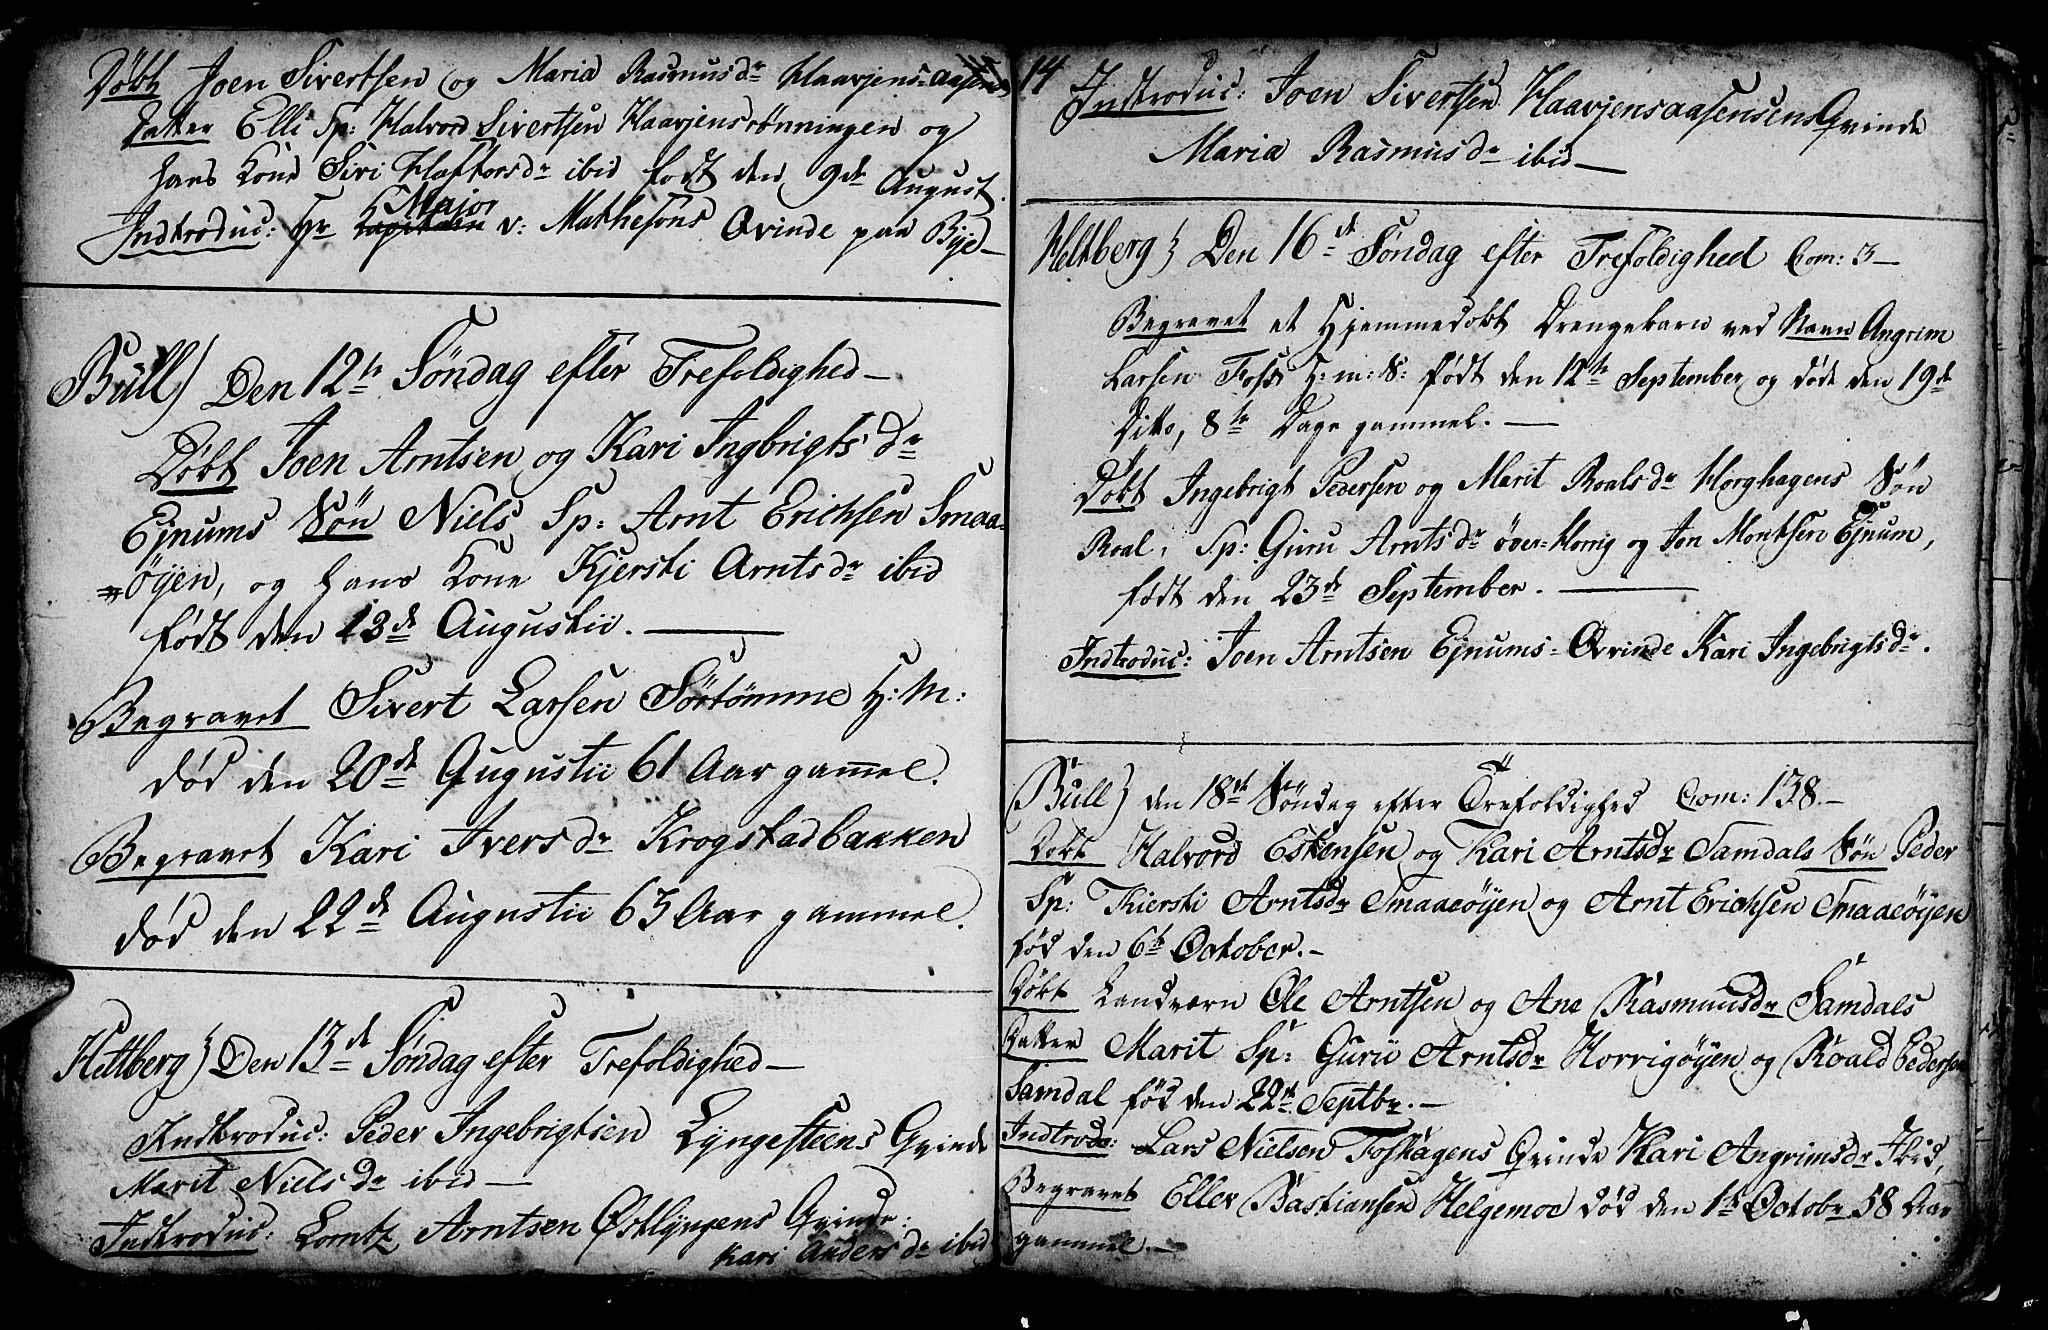 Døbt Joen Sivertsen og Maria Rasmusdr Haavjens-aasens
Datter Elli Sp: Halvord Sivertsen Haavjensrønningen og
hans Kone Siri Haftorsdr ibid født den 9de August.
Major
Indtroduc: Hr Kapitain v: Mathesons Qvinde paa Bye-
Bull) Den 12te Søndag efter Trefoldighed-
Døbt Joen Arntsen og Kari Ingbrigtsdr
Ejnums Søn Niels Sp: Arnt Erichsen Smaa-
=øyen, og hans Kone Kjersti Arntsdr ibid
født den 13de Augustii.
Begravet Sivert Larsen Sørtømme H:M:
død den 20de Augustii 61 Aar gammel.
Begravet Kari Iversdr Krogstadbakken
død den 22de Augustii 63 Aar gammel.
Heltberg) Den 13de Søndag efter Trefoldighed-
Indtroduc: Peder Ingebrigtsen Lyngesteens Qvinde
Marit Nielsdr ibid-
Indtroduc: Lorntz Arntsen Østlyngens Qvinde:
Kari Andersdr ibid
14
Indtroduc: Joen Sivertsen Haavjensaasensens Qvinde
Maria Rasmusdr ibid-
Heltberg) Den 16de Søndag efter Trefoldighed Com: 3-
Begravet et Hjemmedøbt Drengebarn ved Navn Angrim
Larsen Foss H:m:S: født den 12te September og døde den 19de
Ditto, 8te Dage gammel.-
Døbt Ingebrigt Pedersen og Marit Roalsdr Horghagens Søn
Roal, Sp: Guru Arntsdr Øver-Horrig og Jon Montsen Ejnum,
født den 23de September.
Indtroduc: Joen Arntsen Ejnums-Qvinde Kari Ingebrigtsdr.
Bull) den 18de Søndag efter Trefoldighed Com: 138.-
Døbt Halvord Estensen og Kari Arntsdr Samdals Søn Peder
Sp: Kiersti Arntsdr Smaaeøyen og Arnt Erichsen Smaaeøyen
fød den 6te October.-
Døbt Landværn Ole Arntsen og Ane Rasmusdr Samdals
Datter Marit Sp: Guru Arntsdr Horrigøyen og Roald Pedersen
Samdal fød den 22de Septbr.-
Indtrodc: Lars Nielsen Foshagens Qvinde Kari Angrimsdr Ibid,
Begravet Eller Bastiansen Helgemoe død den 1te Octobr 58 Aar
gammel.-